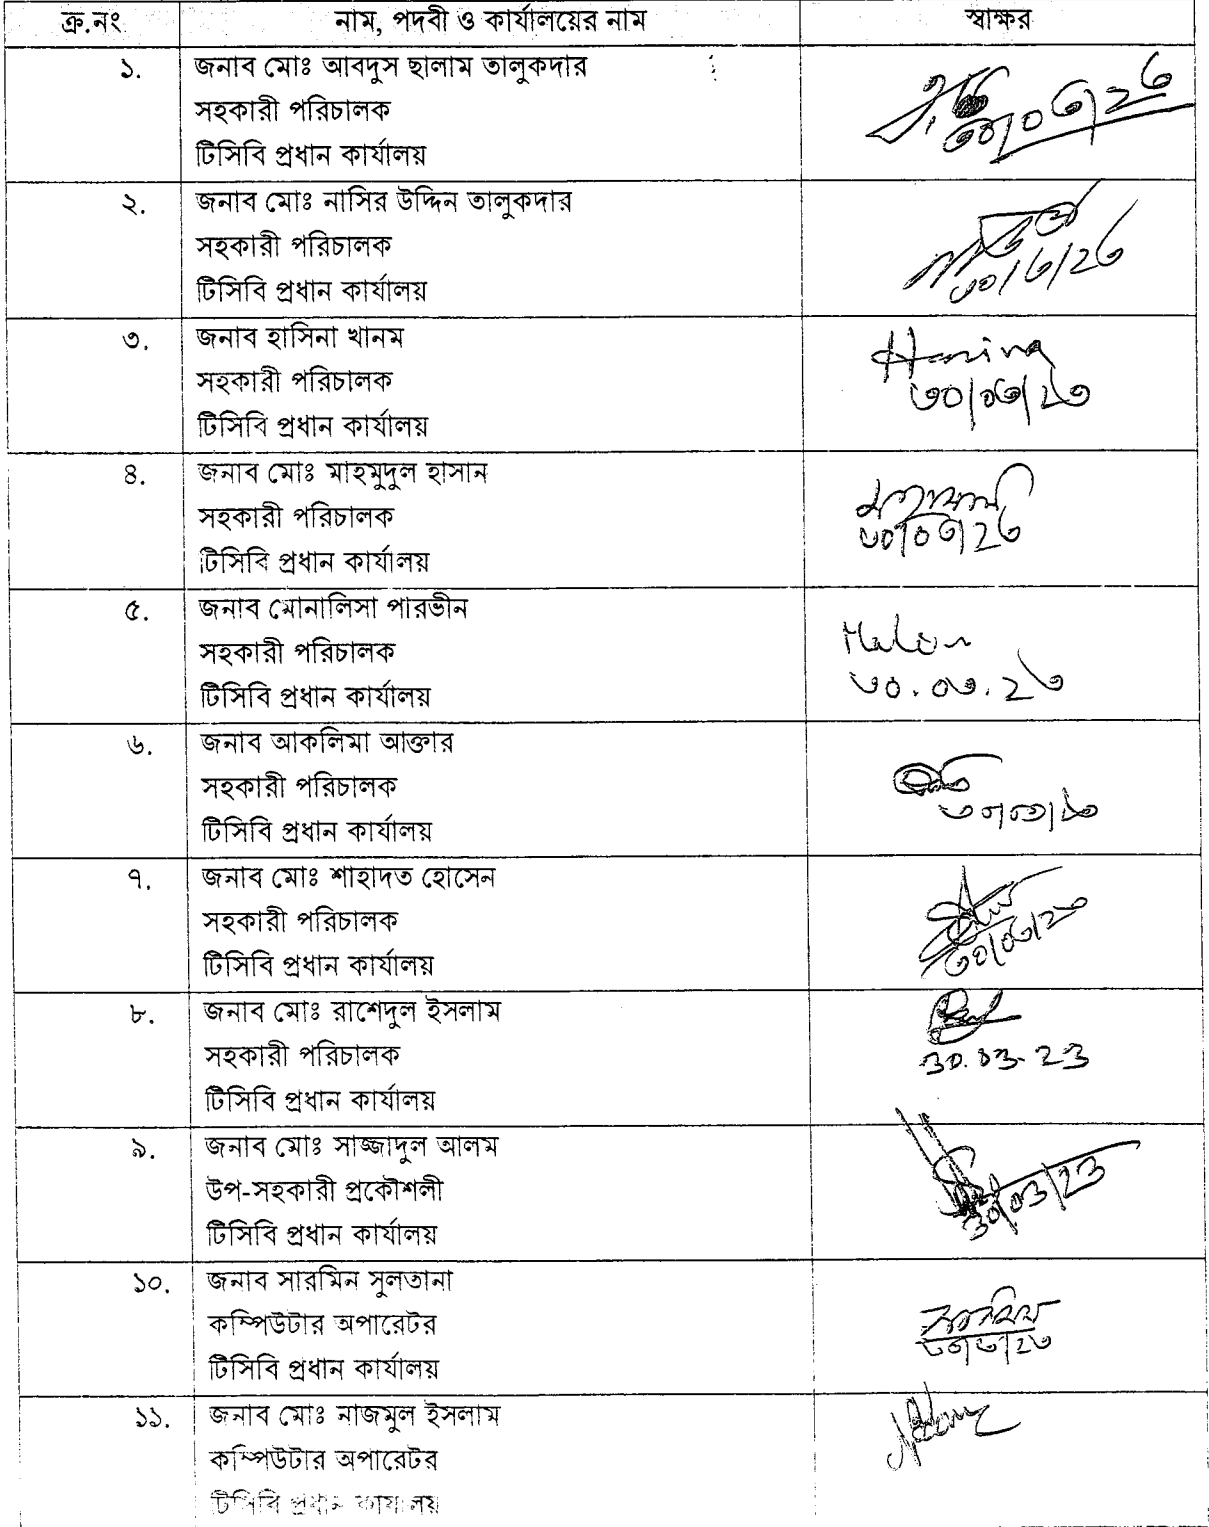 ক্র.নং নাম, পদবী ও কার্যালয়ের নাম স্বাক্ষর
১. জনাব মোঃ আবদুস ছালাম তালুকদার
সহকারী পরিচালক
টিসিবি প্রধান কার্যালয়
৩০/০৩/২৩
২. জনাব মোঃ নাসির উদ্দিন তালুকদার
সহকারী পরিচালক
টিসিবি প্রধান কার্যালয়
৩০/৩/২৩
৩. জনাব হাসিনা খানম
সহকারী পরিচালক
টিসিবি প্রধান কার্যালয়
Hasina
৩০/০৩/২৩
৪. জনাব মোঃ মাহমুদুল হাসান
সহকারী পরিচালক
টিসিবি প্রধান কার্যালয়
৩০/০৩/২৩
৫. জনাব মোনালিসা পারভীন
সহকারী পরিচালক
টিসিবি প্রধান কার্যালয়
৩০.০৩.২৩
৬. জনাব আকলিমা আক্তার
সহকারী পরিচালক
টিসিবি প্রধান কার্যালয়
৩০/০৩/২৩
৭. জনাব মোঃ শাহাদত হোসেন
সহকারী পরিচালক
টিসিবি প্রধান কার্যালয়
৩০/০৩/২৩
৮. জনাব মোঃ রাশেদুল ইসলাম
সহকারী পরিচালক
টিসিবি প্রধান কার্যালয়
30.03.23
৯. জনাব মোঃ সাজ্জাদুল আলম
উপ-সহকারী প্রকৌশলী
টিসিবি প্রধান কার্যালয়
30/03/23
১০. জনাব সারমিন সুলতানা
কম্পিউটার অপারেটর
টিসিবি প্রধান কার্যালয়
সারমিন
৩০/৩/২৩
১১. জনাব মোঃ নাজমুল ইসলাম
কম্পিউটার অপারেটর
টিসিবি প্রধান কার্যালয়